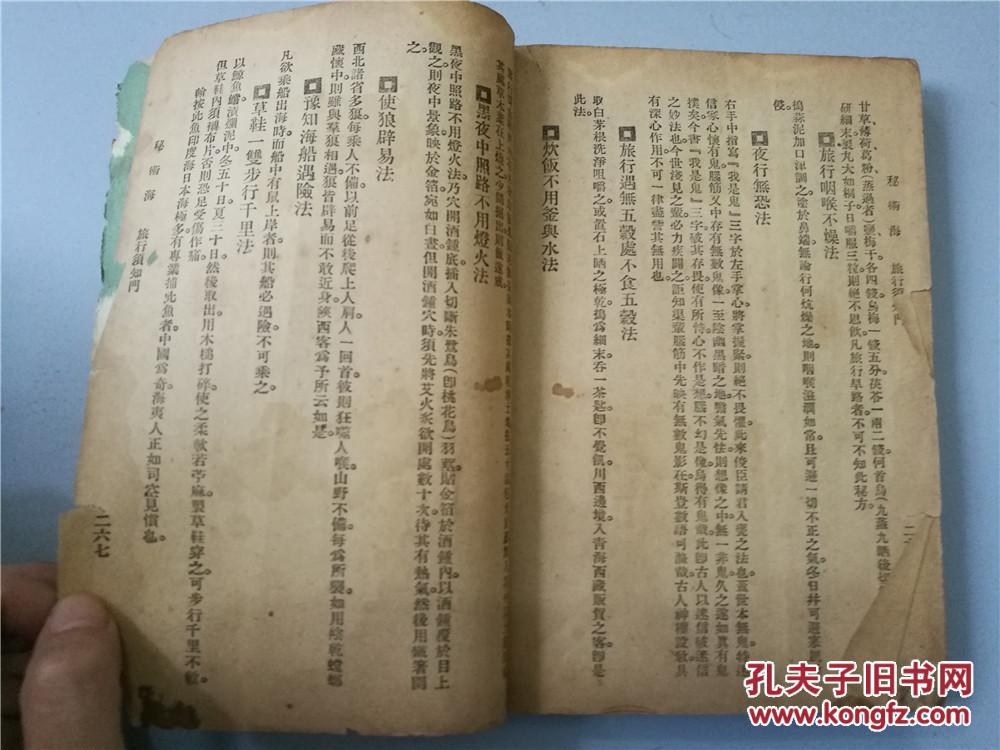 秘術海 旅行須知門
甘草、薄荷、葛粉、(蒸過者)鹽梅干各四錢烏梅一錢五分茯苓一兩二錢何首烏(九蒸九晒後
研細末製丸大如桐子日嚼服三粒則絕不思飲凡旅行旱路者不可不知此秘方
旅行咽喉不燥法
搗蒜泥加口津調之塗於鼻端無論行何炕燥之地則咽喉滋潤如常且可避一切不正之氣冬日幷可避寒
侵
夜行無恐法
右手中指寫『我是鬼』三字於左手掌心將掌握緊則絕不畏懼此來俊臣請君入甕之法也蓋世本無鬼特迷
信家心懷有鬼腦筋又中存有無數鬼像一至陰幽黑暗之地膽氣先怯則想像之中無一非鬼久之遂如真有鬼
撲矣今書『我是鬼』三字破其存畏使有所恃心不作是想腦不幻是像烏得有鬼哉此卽古人以迷信破迷信
之妙法也今世淺見之輩必力疾闢之詎知渠輩腦筋中先映有無數鬼影在斯豈數語可醒哉古人神權設敎具
有深心作用不可一律盡訾其無用也
旅行遇無五穀處不食五穀法
取白茅根洗淨咀嚼之或置石上晒之極乾搗爲細末吞一茶匙卽不覺飢川西邊境入青海西藏販貨之客卽是
此法
炊飯不用釜與水法
黑夜中照路不用燈火法
黑夜中照路不用燈火法乃穴開酒鍾底插入切斷朱鷺鳥(卽桃花鳥)羽莖貼金箔於酒鍾內以酒鍾覆於目上
觀之則夜中景象映於金箔宛如白晝但開酒鍾穴時須先將艾火炙欲開處數十次待其有熱氣然後用鐵箸開
之
使狼辟易法
西北諸省多狼每乘人不備以前足從後爬上人肩人一回首彼則狂噬人喉山野不備每爲所襲如用陰乾螳螂
藏懷中則雖與羣狼相遇狼皆辟易而不敢近身陝西客爲予所云如是
豫知海船遇險法
凡欲乘船出海時而船中有鼠上岸者則其船必遇險不可乘之
草鞋一雙步行千里法
以鯨魚鬚漬爛泥中冬五十日夏三十日然後取出用木槌打碎使之柔軟若苧麻製草鞋穿之可步行千里不敝
但草鞋內須襯布片否則恐足受傷作痛
按此魚印度海日本海極多有專業捕此魚者中國爲奇海夷人正如司空見慣也
秘術海 旅行須知門 二六七
孔夫子旧书网
www.kongfz.com